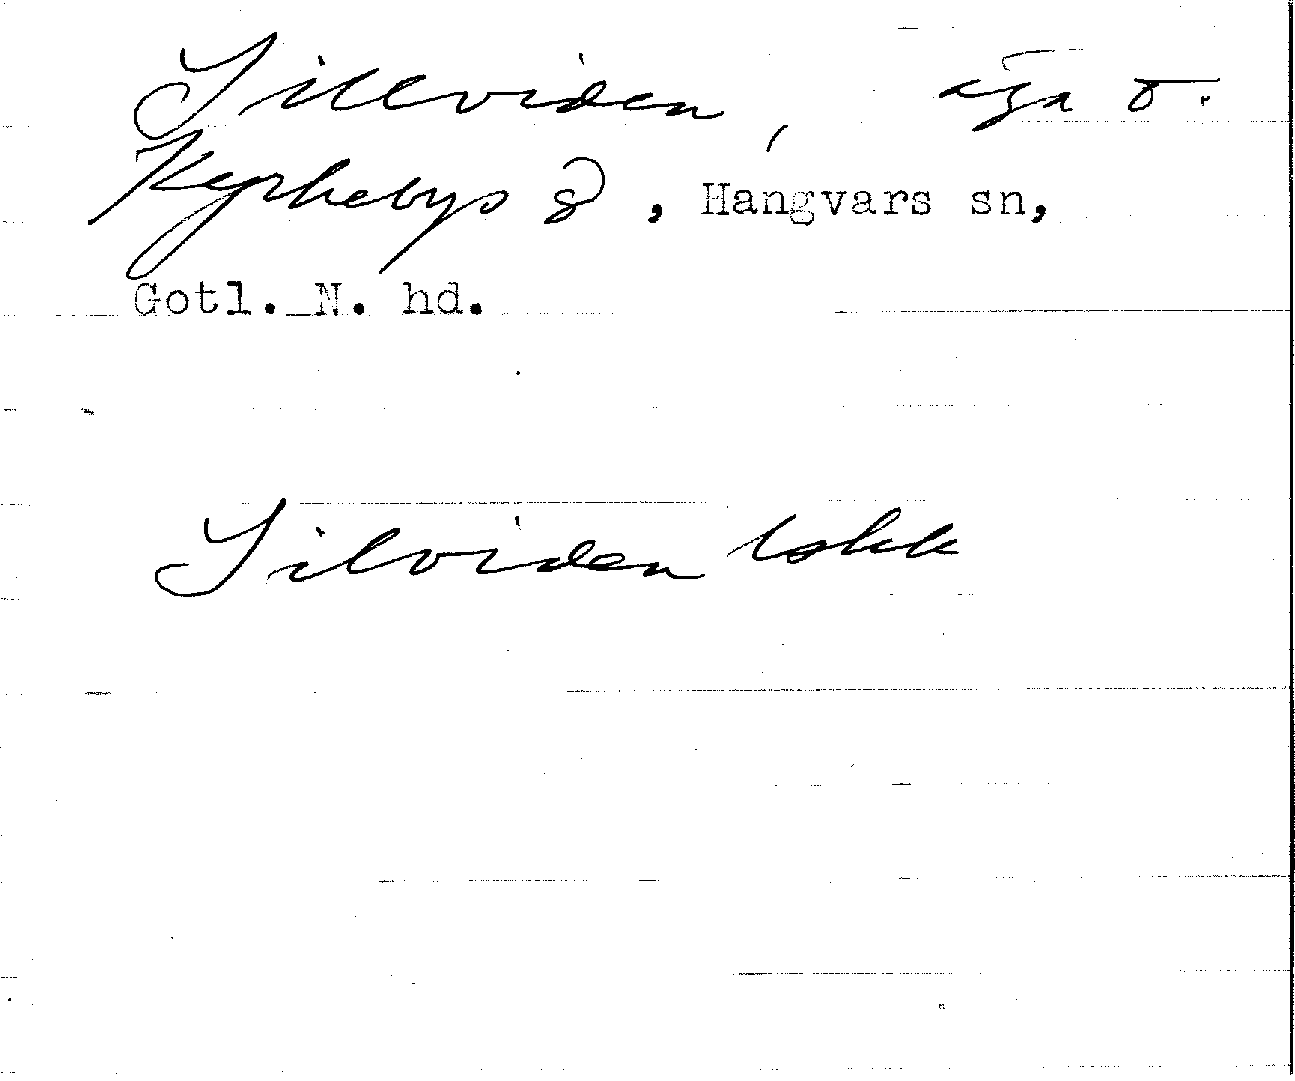 Sillviden, äga o.
Kyrkebys g, Hangvars sn,
Gotl. N. hd.
Silviden lskk